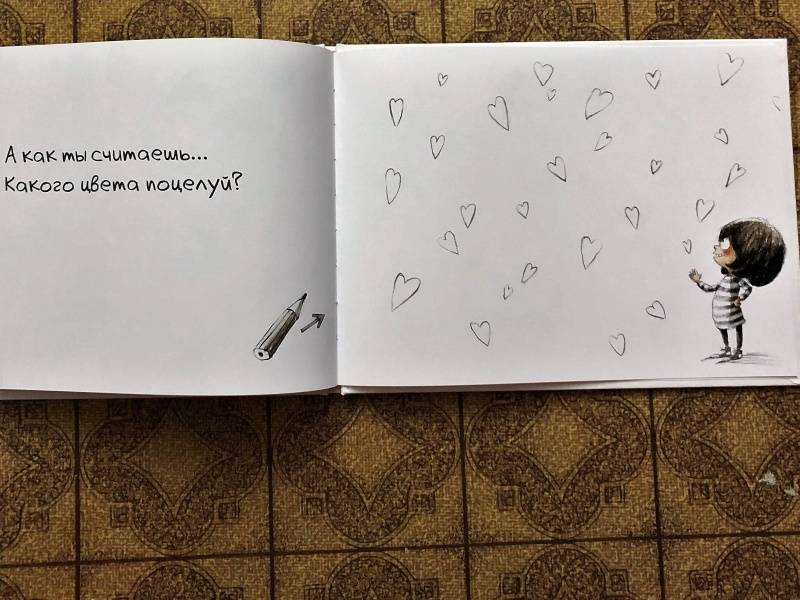 А как ты считаешь...
Какого цвета поцелуй?